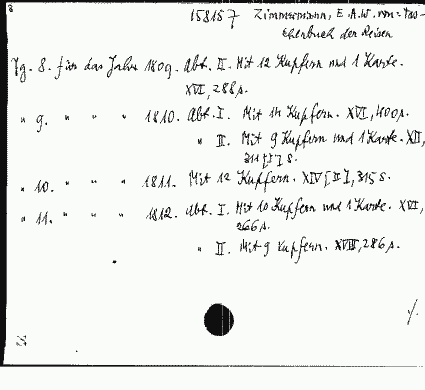 8
158157 Zimmermann, E.A.W. von: Tas-
chenbuch der Reisen
Jg. 8. für das Jahr 1809. Abt. II. Mit 12 Kupfern und 1 Karte.
XVI, 288 s.
" 9. " " " 1810. Abt. I. Mit 14 Kupfern. XVI, 400 s.
" II. Mit 9 Kupfern und 1 Karte. XII,
311 [I] S.
" 10. " " " 1811. Mit 12 Kupfern. XIV [II], 315 S.
" 11. " " " 1812. Abt. I. Mit 10 Kupfern und 1 Karte. XVI,
266 s.
" II. Mit 9 Kupfern. XVIII, 286 s.